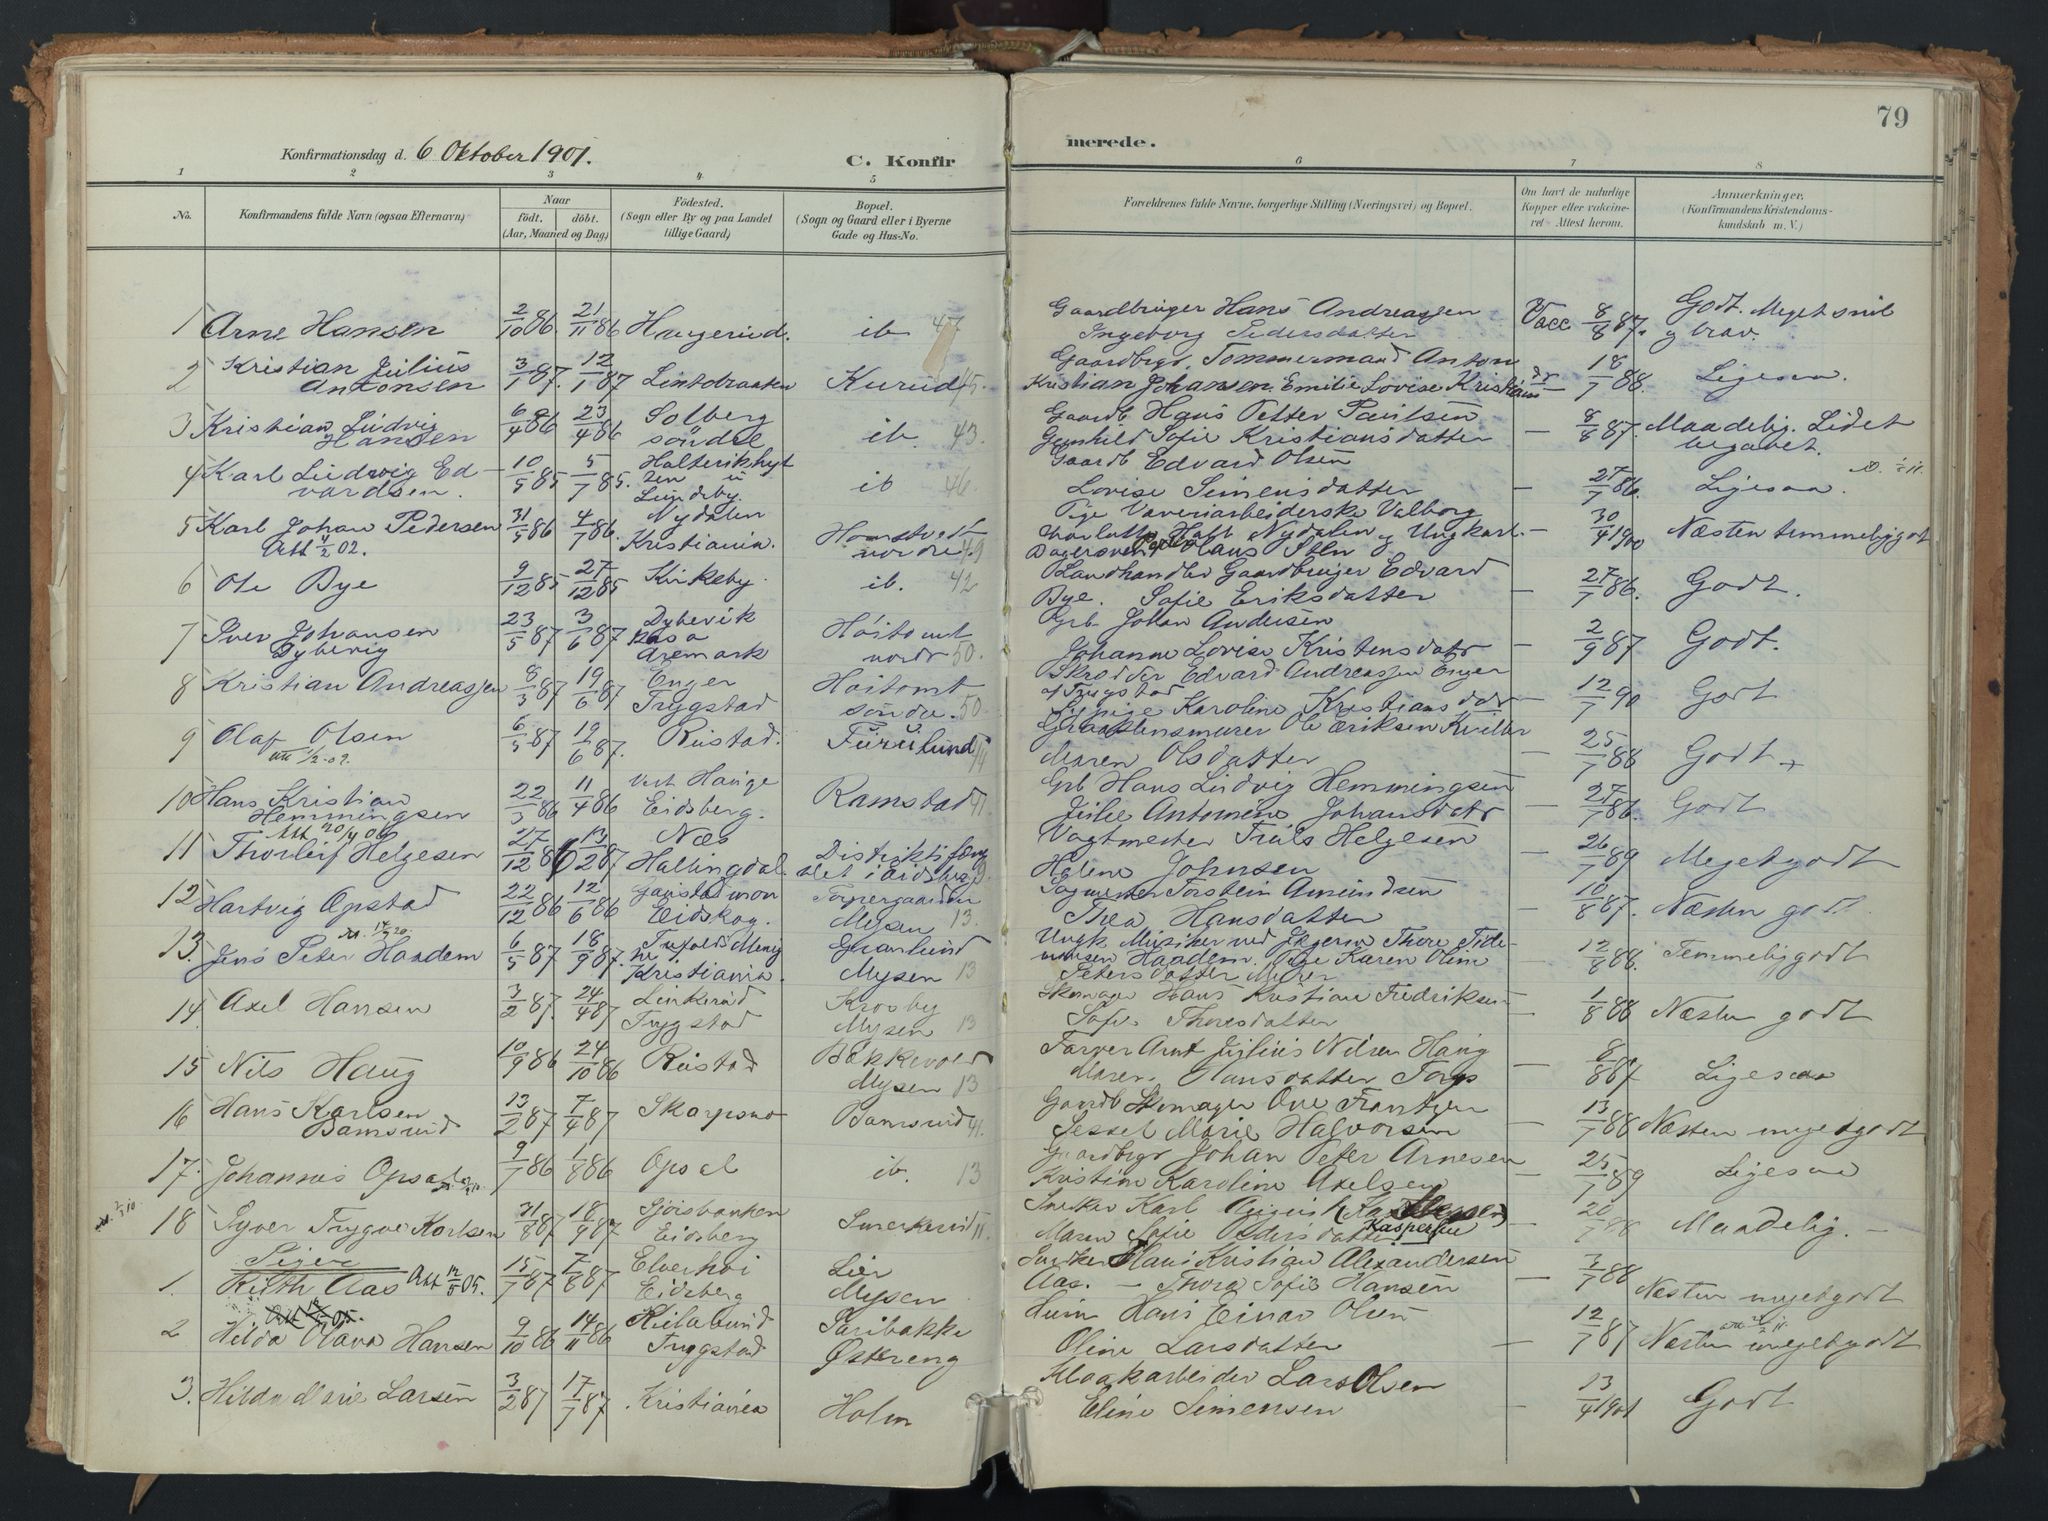 79
Konfirmationsdag d. 6 Oktober 1901.
C. Konfir
merede.
1 2 3 4 5 6 7 8
No.
Konfirmandens fulde Navn (ogsaa Efternavn).
Naar
født. døbt.
(Aar, Maaned og Dag)
Fødested.
(Sogn eller By og paa Landet
tillige Gaard)
Bopæl.
(Sogn og Gaard eller i Byerne
Gade og Hus-No.
Forældrenes fulde Navne, borgerlige Stilling (Næringsvei) og Bopæl.
Om havt de naturlige
Kopper eller vakcine-
ret - Attest herom.
Anmærkninger.
(Konfirmandens Kristendoms-
kundskab m. V.)
1 Arne Hansen 2/10 86. 21/11 86 Haugerud. ib 47 Gaardbruger Hans Andreassen
Ingeborg Pedersdatter Vacc 8/8 87. Godt. Meget snil
og brav.
2 Kristian Julius
Antonsen 3/1 87. 12/1 87 Kurud 45. Gaardbrgr. Tømmermand Anton
Kristian Johansen Emilie Lovise Kristians dr — 18/7 88. Ligesaa.
3 Kristian Ludvig
Hansen 6/4 86 23/4 86 Solberg
søndre ib. 43. Gaardb. Hans Petter Paulsen
Gunhild Sofie Kristiansdatter — 8/8 87. Maadelig. Lidet
begavet.
4 Karl Ludvig Ed-
vardsen. 10/5 85 5/7 85. Lundeby. ib 46. Gaardb Edvard Olsen
Lovise Simensdatter — 27/7 86. Ligesaa.
5 Karl Johan Pedersen
Att 4/2 02. 31/5 86 4/7 86. Nydalen
Kristiania. nordre 49 Pige Væveriarbeiderske Valborg
Nydalen og Ungkarl
Hans — 30/4 1900 Næsten temmeliggodt
6 Ole Bye 9/12 85 27/12 85 Kirkeby. ib. 42 Landhandler Gaardbruger Edvard
Bye. Sofie Eriksdatter — 27/7 86. Godt.
7 Iver Johansen
Dybevig 23/5 87 3/6 87 Dybevik
Aremark Høitomt
nordr 50. Grb. Johan Andersen
Johanne Lovise Kristensdatr — 2/9 87 Godt.
8 Kristian Andreassen 8/3 87 19/6 87 Enger
Trygstad Høitomt
søndre 50. Skrædder Edvard Andreassen Enger
af Trygstad
Karoline Kristiansdatr 12/7 90 Godt
9 Olaf Olsen 6/5 87 19/6 87. Rustad. Furulund Ole Eriksen
Maren Olsdatter — 25/7 88 Godt
10 Hans Kristian
Hemmingsen 22/3 86 11/4 86 Vest. Hauge
Eidsberg. Ramstad 41. Grb Hans Ludvig Hemmingsen
Julie Antomine Johansdatr — 27/7 86. Godt
Att 20/4 06
11 Thorleif Helgesen 27/12 86 13/2 87 Næs
Hallingdal. Distriktsfæng
slet i Eidsberg Vagtmester Truls Helgesen
Helene Johnsen — 26/7 89 Megetgodt
12 Hartvig Opstad 22/12 86 12/6 86
Eidskog. Mysen 13. Sagmester Torstein Amundsen
Thea Hansdatter — 10/8 87. Næsten godt
13. Jens Peter Haadem 6/5 87 18/9 87. Kristiania. Granlund
Mysen 13 Ungk. Musiker ved Jægerne Thore Tide-
mansen Haadem. Pige Karen Oline
Petersdatter — 12/8 88. Temmeliggodt
14. Axel Hansen 3/2 87. 24/4 87 Linkerud
Trygstad Krosby
Mysen 13 Skomager Hans Kristian Fredriksen
Sofie Thoresdatter — 1/8 88 Næsten godt
15 Nils Haug 10/9 86 24/10 86 Rustad Bækkevold
Mysen 13 Farver Arnt Julius Nilsen Haug
Maren Hansdatter — 8/8 87 Ligesaa
16 Hans Karlsen
Bamsrud 13/2 87 7/4 87 Skarpsno Bamsrud 41. Gaardb Skomager Ove Frantzen
Sessel Marie Halvorsen — 13/7 88 Næsten megetgodt
17. Johannes Opsal 9/7 86 1/8 86 Opsal ib. 13 Gaardbrgr Johan Peter Arnesen
Kristine Karoline Axelsen — 25/7 89 Ligesaa
18 Syver Trygve Karlsen 31/8 87 18/9 87 Eidsberg 11. Snekker Karl August
Maren Sofie Kaspersen 20/7 88 Maadelig.
Piger
1. Ruth Aas Att 12/5 05. 15/7 87 7/8 87 Elverhøi
Eidsberg Lier
Mysen Snekker Hans Kristian Alexandersen
Aas. — Thora Sofie Hansen — 3/7 88 Næsten megetgodt
2 Hilda Olava Hansen 9/10 86 14/11 86
Trygstad Saribakke
Østereng Hans Einar Olsen
Oline Larsdatter — 12/7 87 Næsten megetgodt
3. Hilda Marie Larsen 3/2 87 17/7 87. Kristiania Holm Kloakarbeider Lars Olsen
Eline Simensen — 13/4 1901 Godt